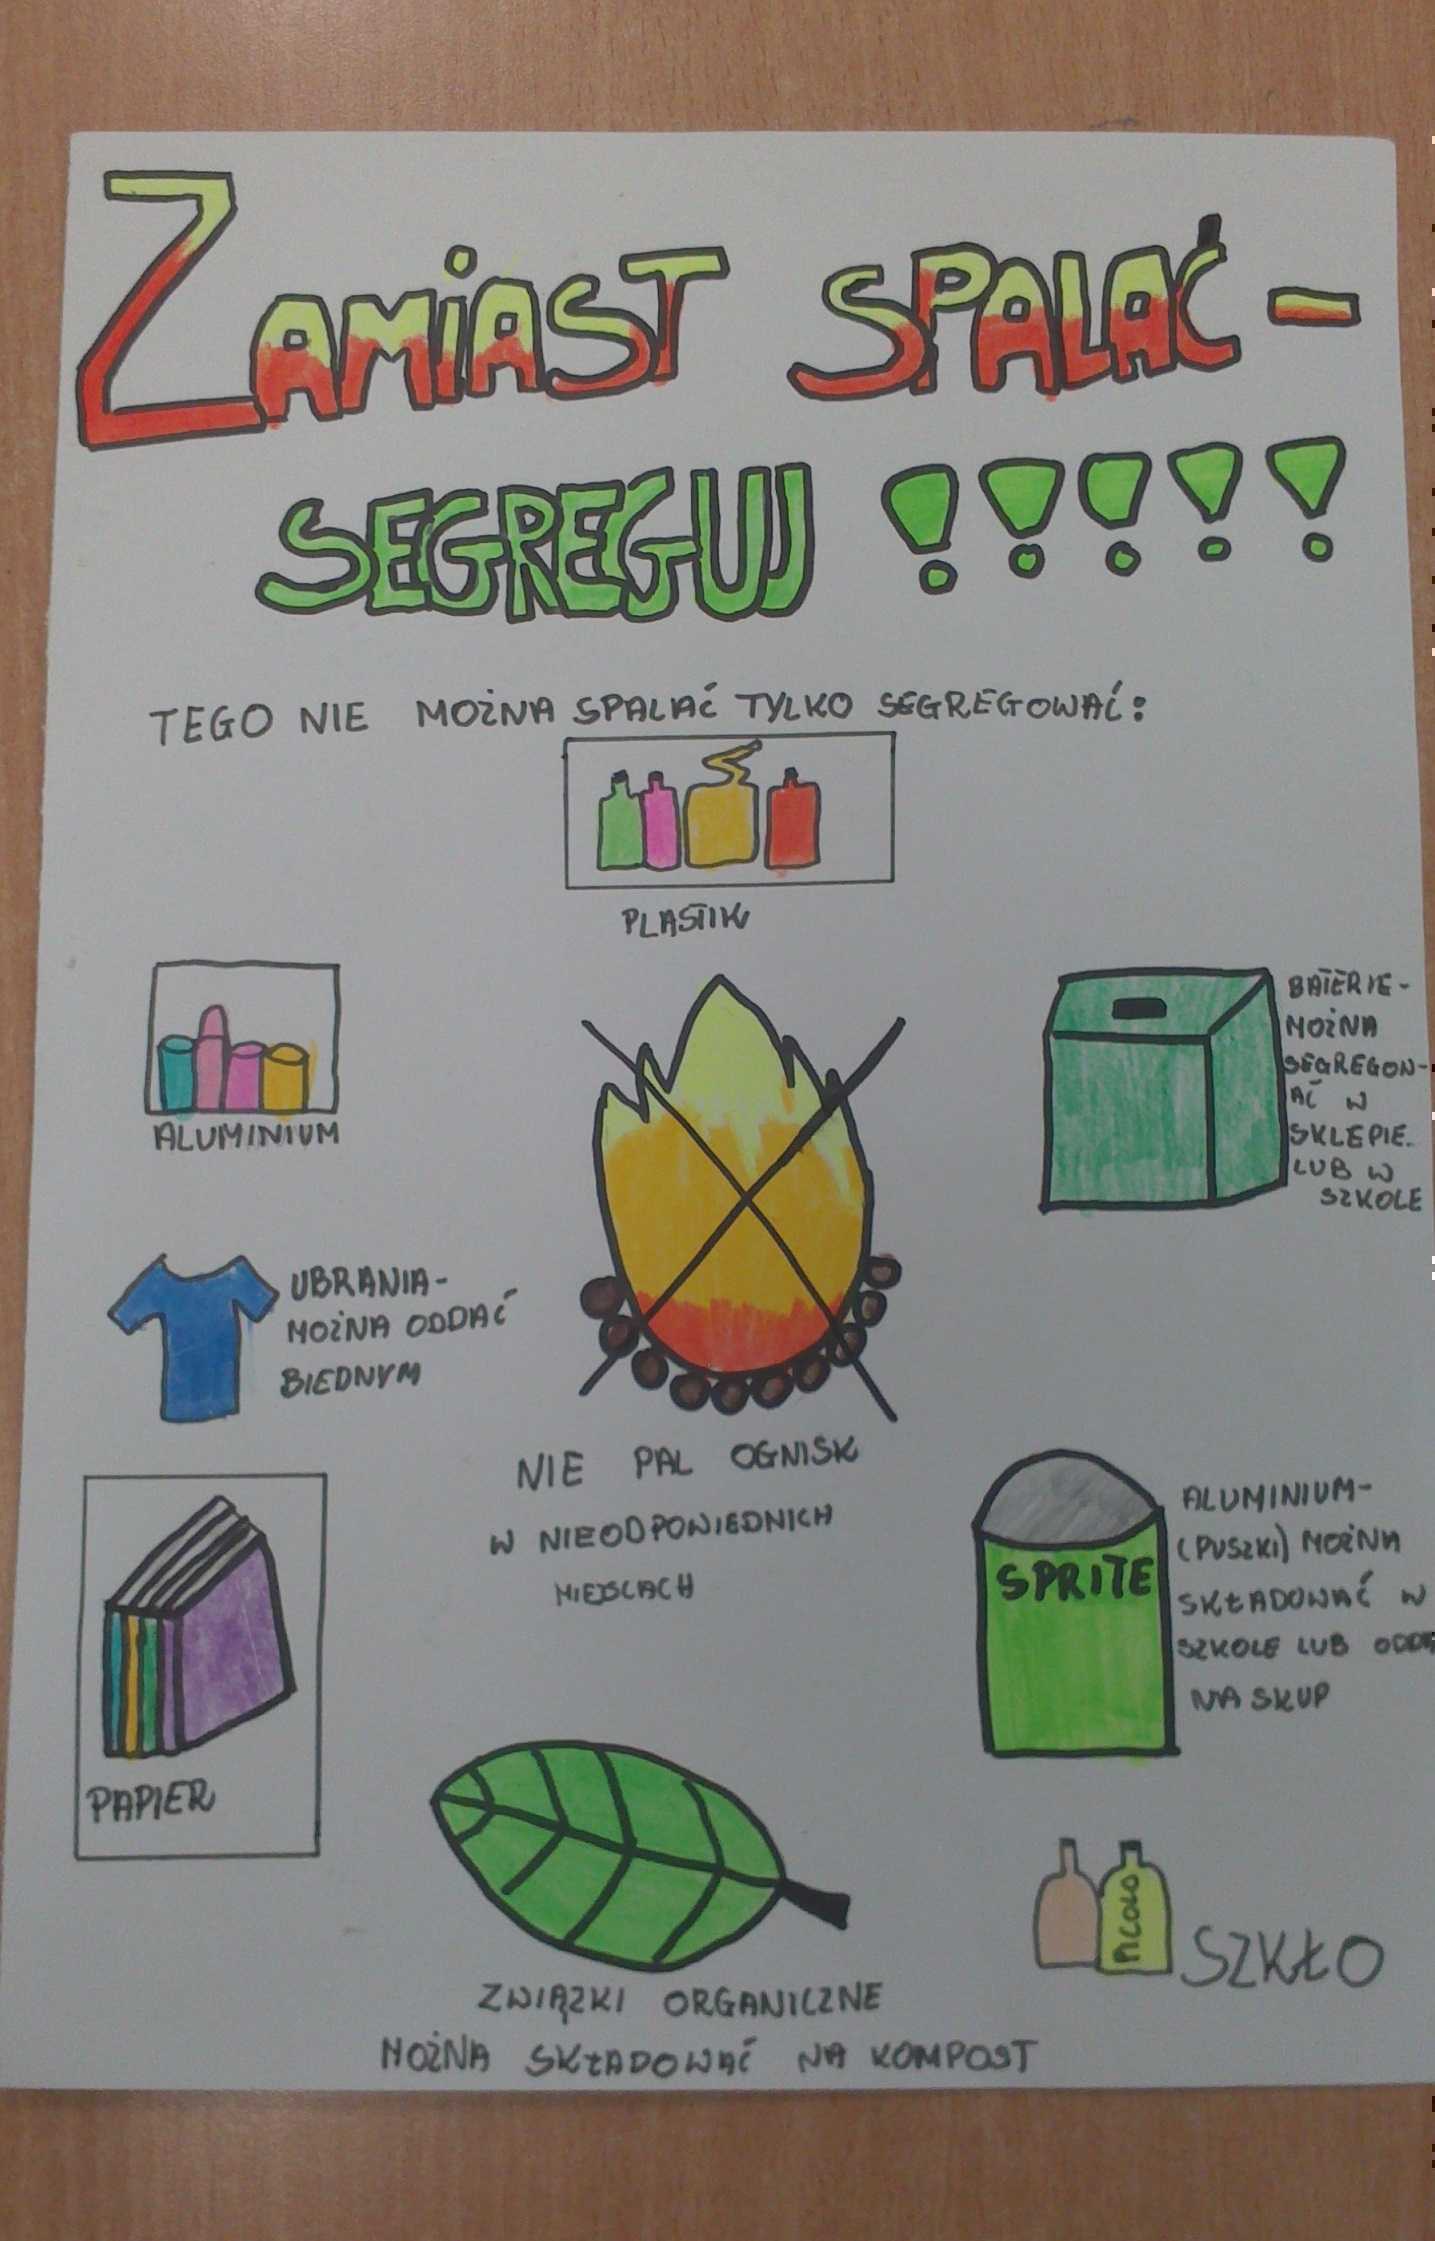 ZAMIAST SPALAĆ -
SEGREGUJ !!!!!
TEGO NIE MOŻNA SPALAĆ TYLKO SEGREGOWAĆ:
PLASTIK
ALUMINIUM
BATERIE-
MOŻNA
SEGREGOW-
AĆ W
SKLEPIE
LUB W
SZKOLE
UBRANIA-
MOŻNA ODDAĆ
BIEDNYM
NIE PAL OGNISK
W NIEODPOWIEDNICH
MIEJSCACH
SPRITE
ALUMINIUM-
(PUSZKI) MOŻNA
SKŁADOWAĆ W
SZKOLE LUB
NA SKUP
PAPIER
PICOLO
SZKŁO
ZWIĄZKI ORGANICZNE
MOŻNA SKŁADOWAĆ NA KOMPOST